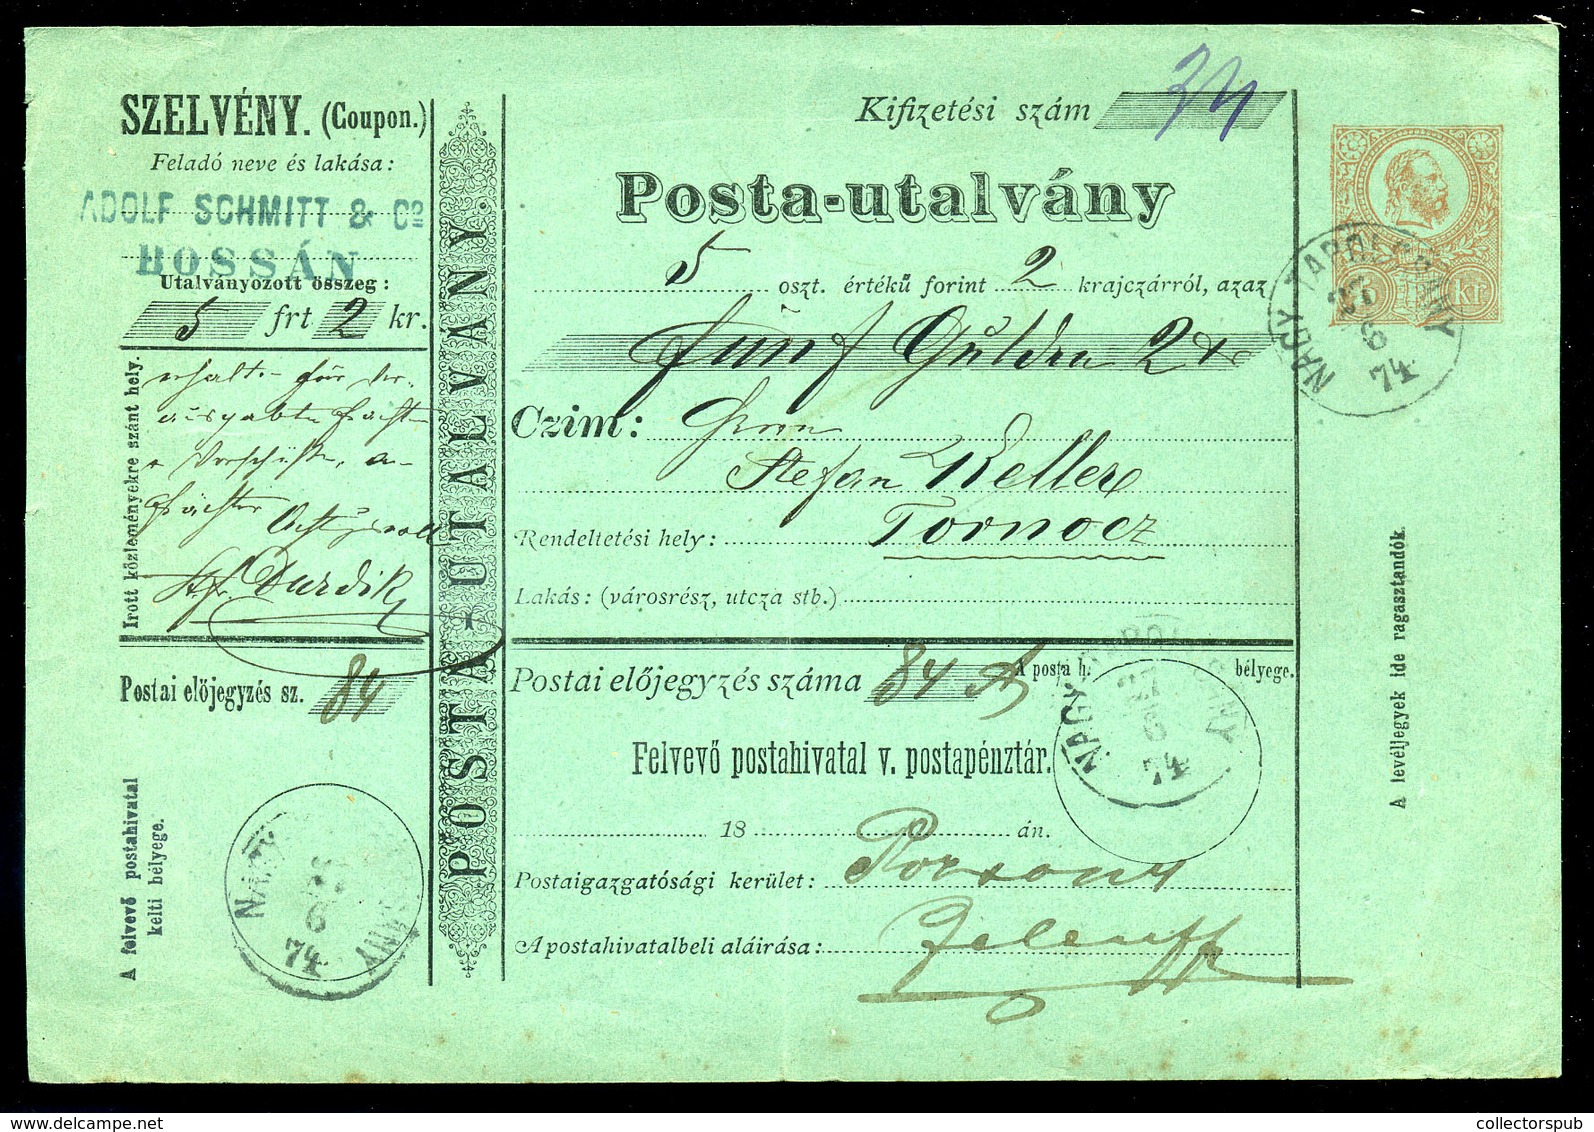 SZELVÉNY. (Coupon.)
Feladó neve és lakása:
ADOLF SCHMITT & Co
BOSSÁN
Utalványozott összeg:
5 frt 2 kr.
Irott közleményekre szánt hely.
erhalten für
Durdik
Postai előjegyzés sz. 84
A felvevő postahivatal
kelti bélyege.
NAGY
6
74
POSTA-UTALVÁNY.
Kifizetési szám
Posta-utalvány
5 oszt. értékű forint 2 krajczárról, azaz
fünf Gulden 2 x
Czim: Herrn
Stefan Keller
Rendeltetési hely: Tornocz
Lakás: (városrész, utcza stb.)
Postai előjegyzés száma 84
A posta h. bélyege.
NAGY TAPOLCSÁNY
27
6
74
Felvevő postahivatal v. postapénztár.
18 án.
Postaigazgatósági kerület: Pozsony
A postahivatalbeli aláirása:
kr
NAGY TAPOLCSÁNY
27
6
74
A levéljegyek ide ragasztandók.
collectorspub